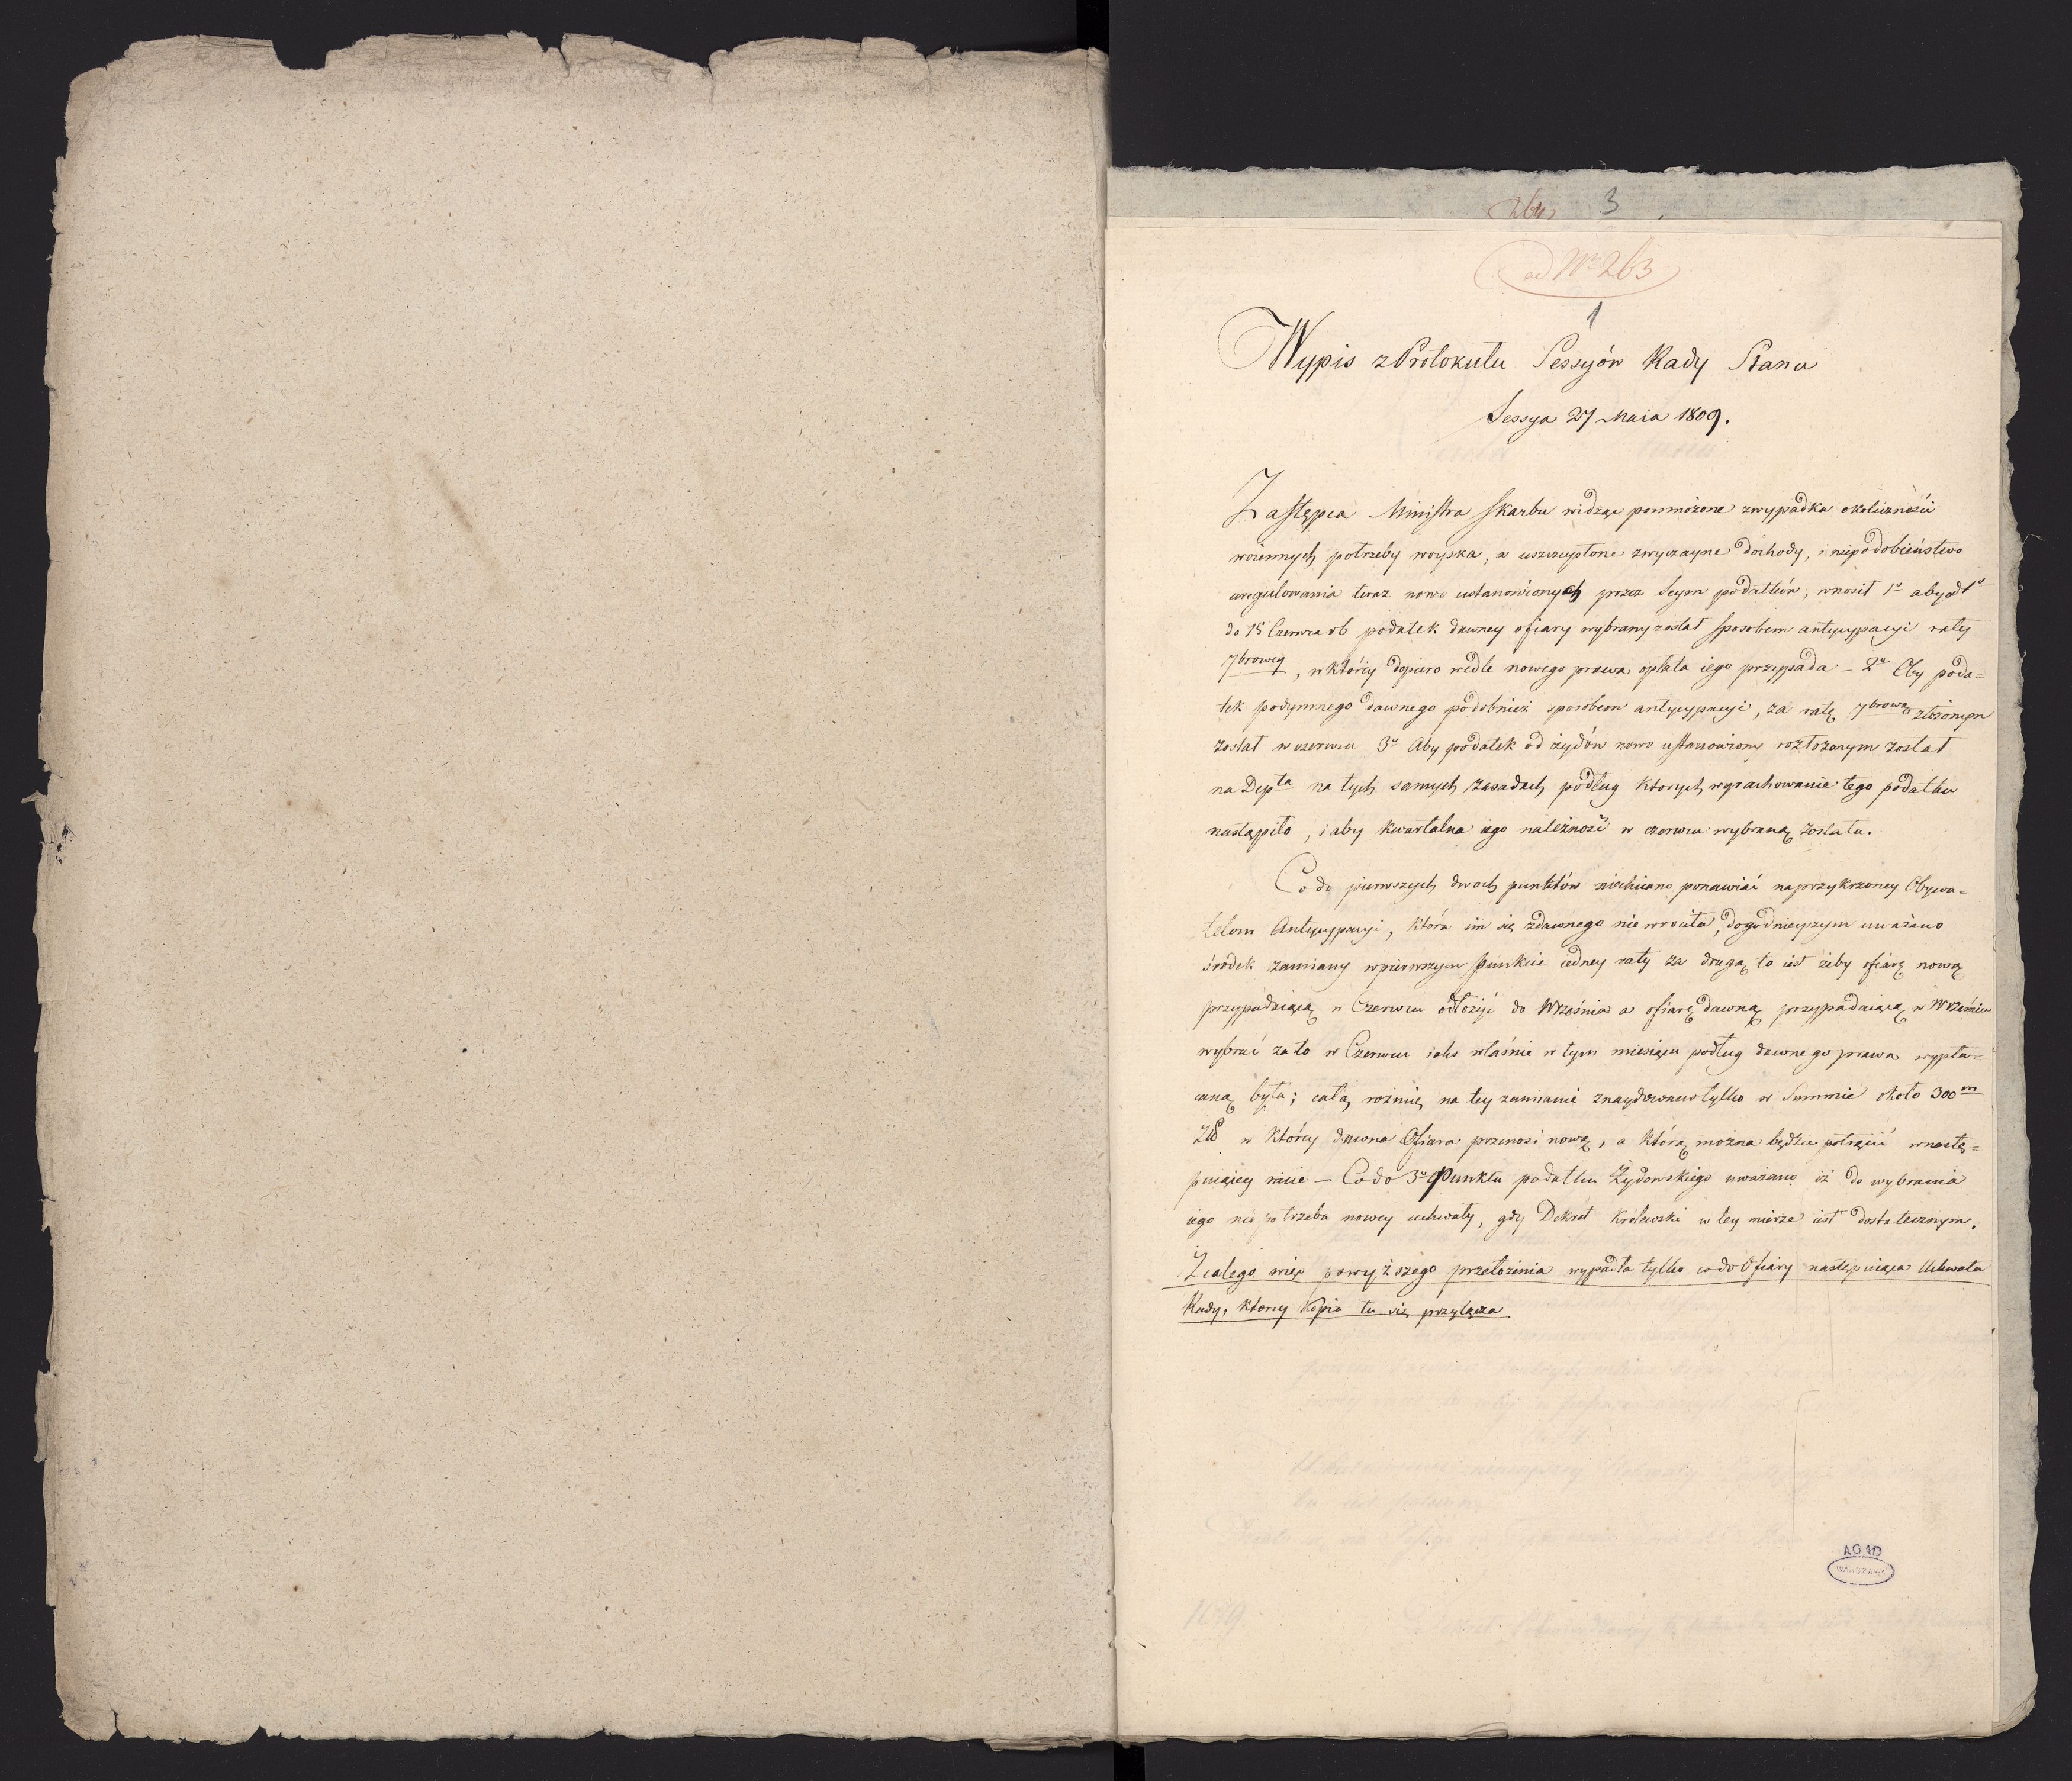 264 3
ad Nro 263
1
Wypis z Protokułu Sessyów Rady Stanu
Sessya 27 Maia 1809.
Zastępca Ministra Skarbu widząc pomnożone zwypadku okoliczności
woiennych potrzeby woyska, a uszczuplone zwyczayne dochody, i niepodobieństwo
uregulowania teraz nowo ustanowionych przez Seym podatków, wnosił 1o aby od 1o
do 15 Czerwca rb podatek dawney ofiary wybrany został sposobem antycypacyi raty
7browey, w którey dopiero wedle nowego prawa opłata iego przypada – 2o Aby poda=
tek podymnego dawnego podobnież sposobem antycypacyi, za ratę 7browę złożonym
został w czerwcu 3o Aby podatek od żydów nowo ustanowiony rozłożonym został
na Depta na tych samych zasadach podług ktorych wyrachowanie tego podatku
nastąpiło, i aby kwartalna iego należność w czerwcu wybraną została.
Co do pierwszych dwoch punktów niechciano ponawiać naprzykrzoney Obywa=
telom Antycypacyi, która im się zdawnego nie wrociła, dogodnieyszym uważano
środek zamiany wpierwszym punkcie iedney raty za drugą to iest żeby ofiarę nową
przypadaiącą w Czerwcu odłożyć do Września a ofiarę dawną przypadaiącą w Wrześniu
wybrać za to w Czerwcu iako właśnie w tym miesiącu podług dawnego prawa wypła=
caną była; całą rożnicę na tey zamianie znaydowano tylko w Summie około 300m
Złł w którey dawna Ofiara przenosi nową, a którą można będzie potrącić wnastę=
puiącey racie – Co do 3o Punktu podatku Żydowskiego uważano iż do wybrania
iego nie potrzeba nowey uchwały, gdy Dekret Królewski w tey mierze iest dostatecznym.
Zcałego więc powyższego przełożenia wypadła tylko co do Ofiary następuiąca Uchwała
Rady, ktorey Kopia tu się przyłącza.
AGAD
WARSZAWA